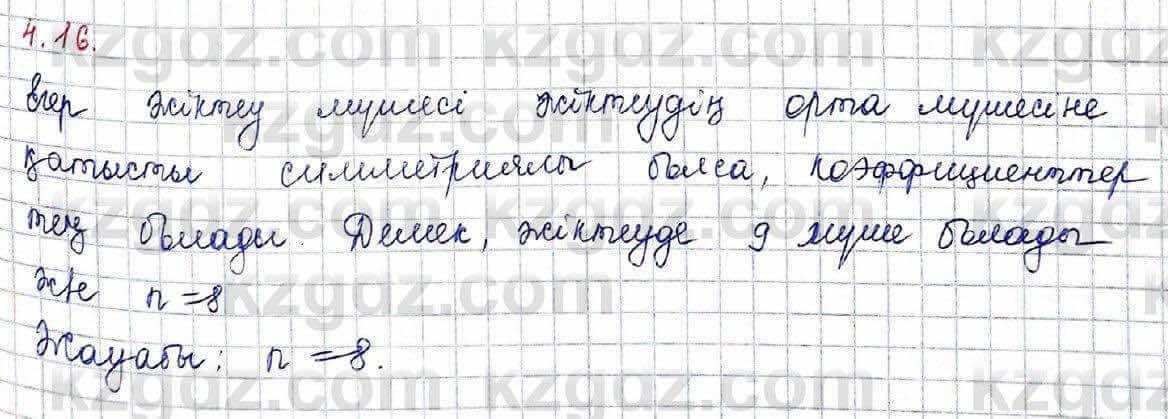 4.16.
Егер жіктеу мүшесі жіктеудің орта мүшесіне
қатысты симметриялы болса, коэффициенттер
тең болады. Демек, жіктеуде 9 мүше болады
және n = 8
Жауабы: n = 8.
kzgdz.com